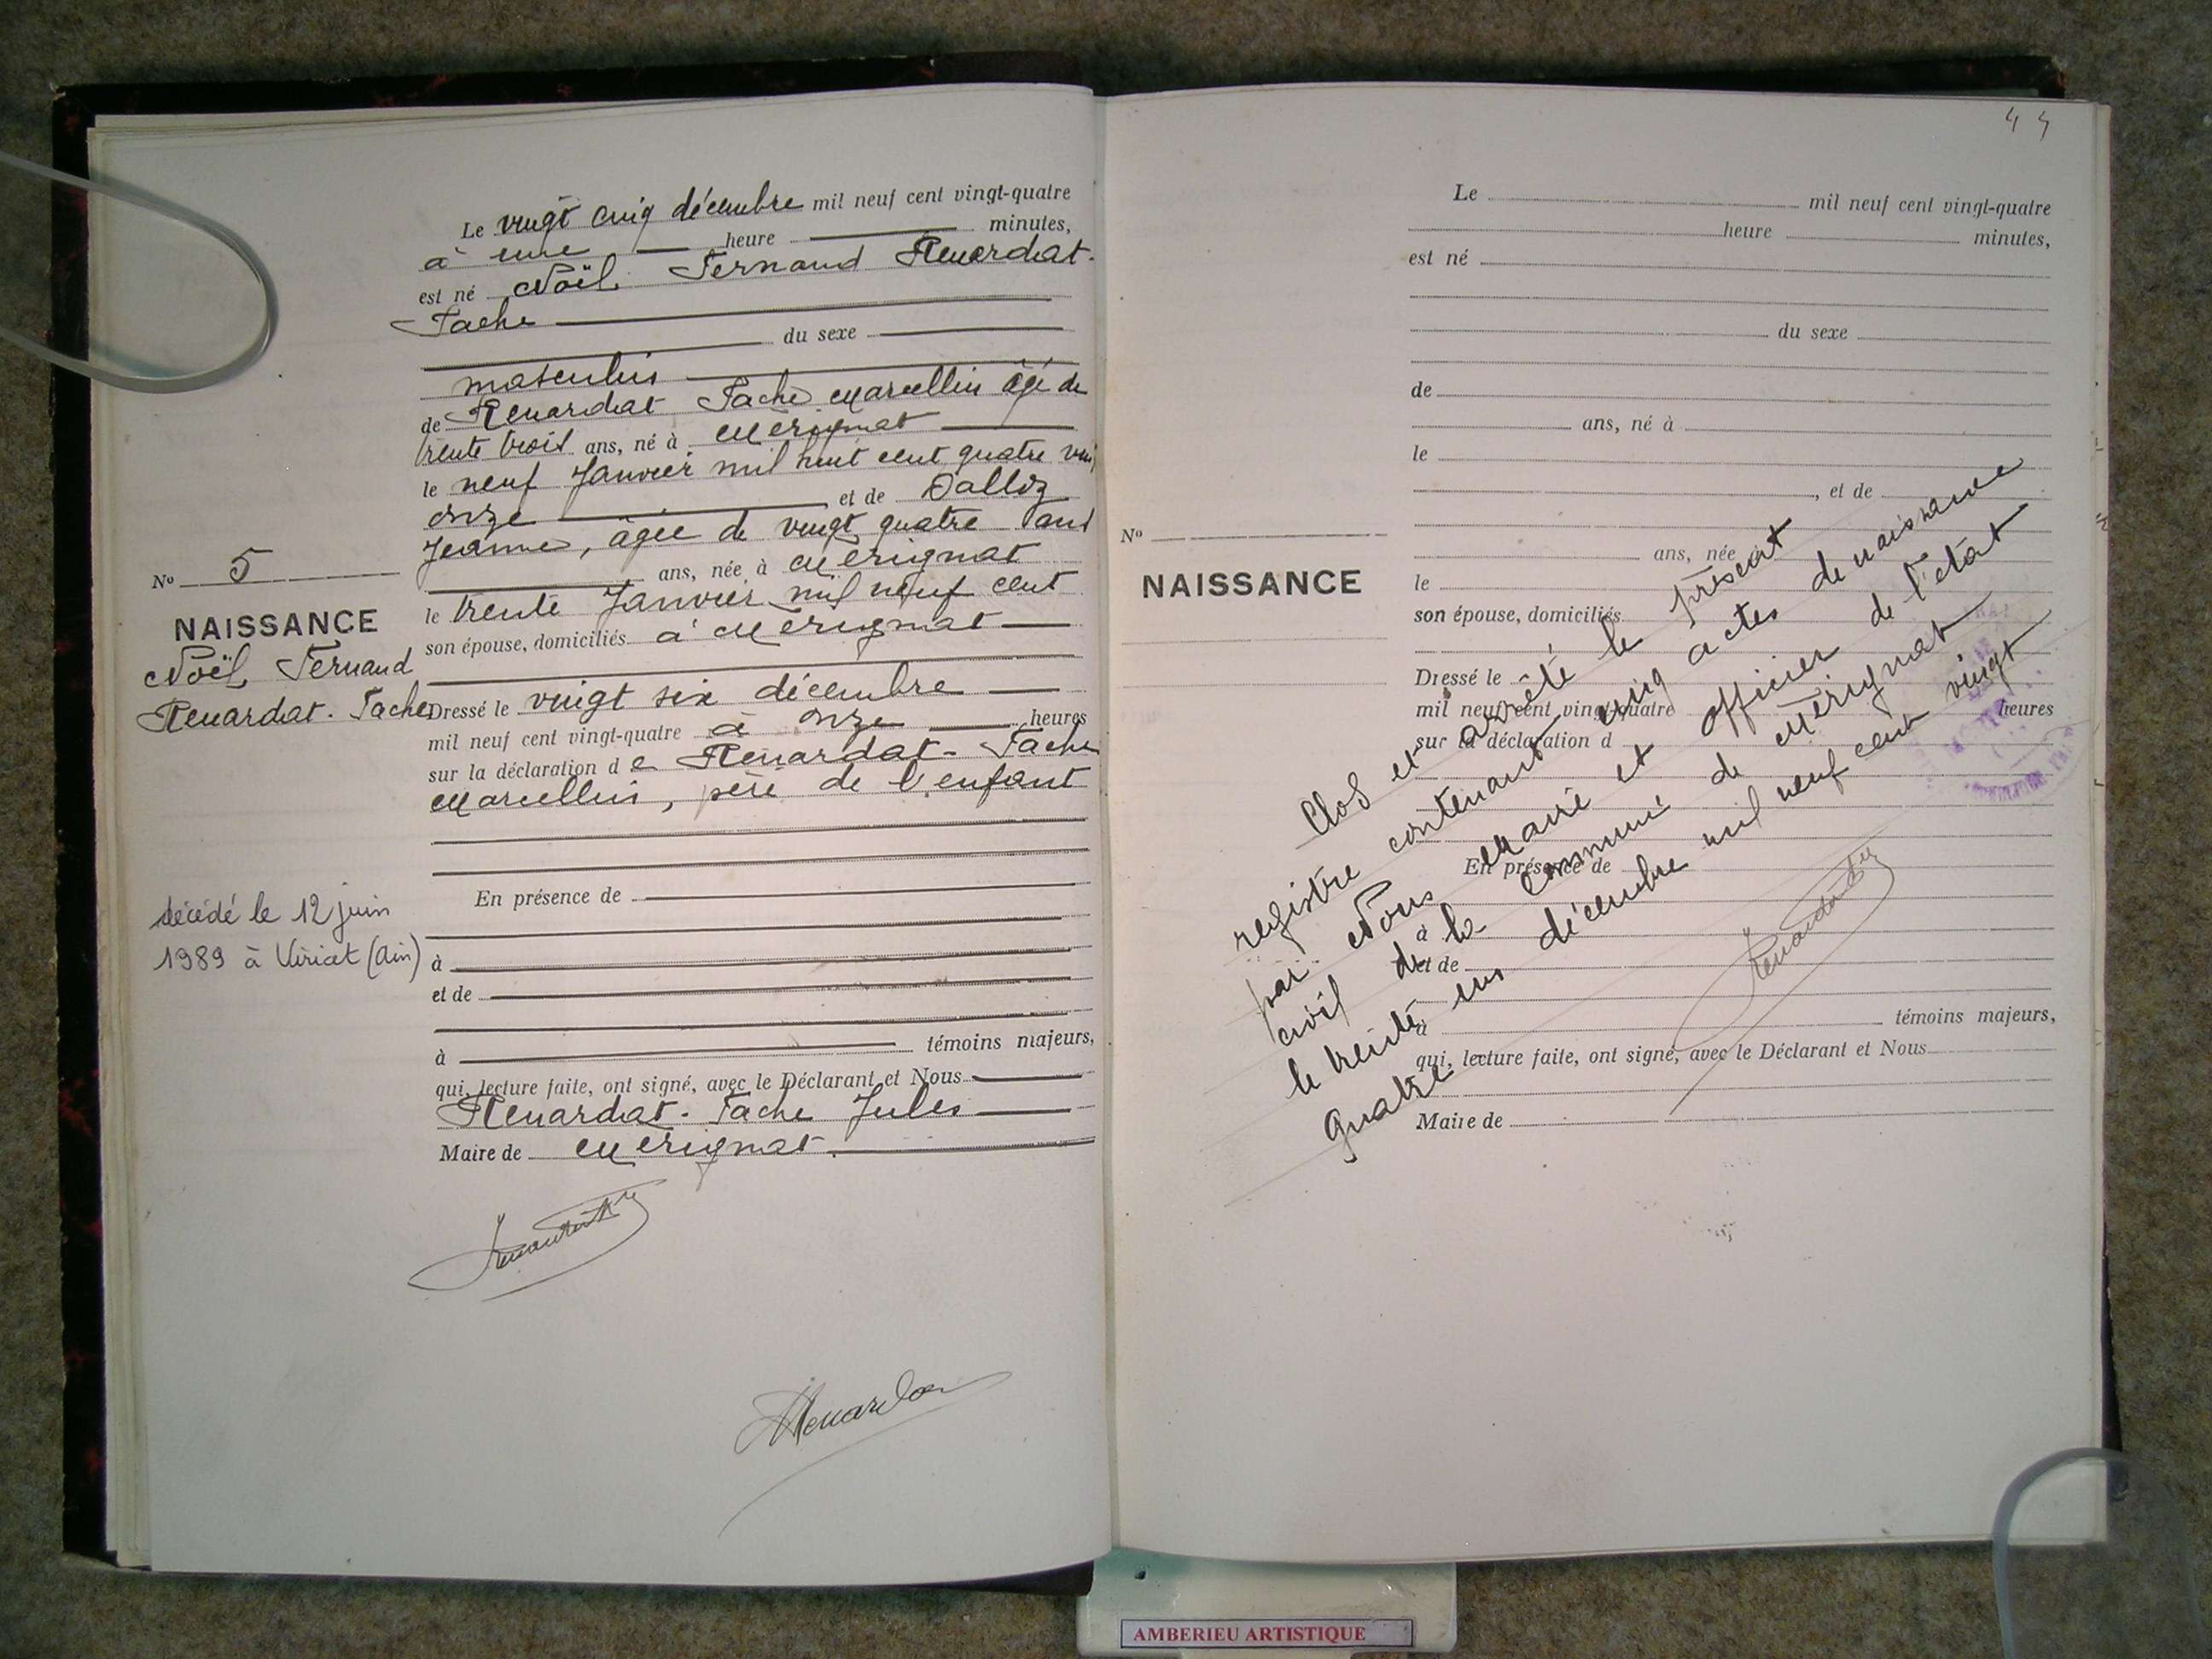 Le vingt cinq décembre mil neuf cent vingt-quatre
à une heure minutes,
est né Noël Fernand Renardat-
Fache
du sexe
masculin
de Renardat Fache Marcellin âgé de
trente trois ans, né à Mérignat
le neuf Janvier mil huit cent quatre vin
onze et de Dalloz
Jeanne, âgée de vingt quatre ans
ans, née à Mérignat
le trente Janvier mil neuf cent
son épouse, domiciliés à Mérignat
Dressé le vingt six décembre
mil neuf cent vingt-quatre à onze heures
sur la déclaration de Renardat-Fache
Marcellin, père de l'enfant
En présence de
à
et de
à témoins majeurs,
qui, lecture faite, ont signé, avec le Déclarant et Nous
Renardat-Fache Jules
Maire de Mérignat.
No 5
NAISSANCE
Noël Fernand
Renardat-Fache
décédé le 12 juin
1989 à Viriat (Ain)
44
Le mil neuf cent vingt-quatre
heure minutes,
est né
du sexe
de
ans, né à
le
, et de
ans, née
le
son épouse, domiciliés
Dressé le
mil neuf cent vingt-quatre heures
sur la déclaration d
En présence de
à
et de
à témoins majeurs,
qui, lecture faite, ont signé, avec le Déclarant et Nous
Maire de
No
NAISSANCE
Clos et arrêté le présent
registre contenant cinq actes de naissance
par Nous Maire et officier de l'état
civil de la Commune de Mérignat
le trente un décembre mil neuf cent vingt
quatre
AMBERIEU ARTISTIQUE